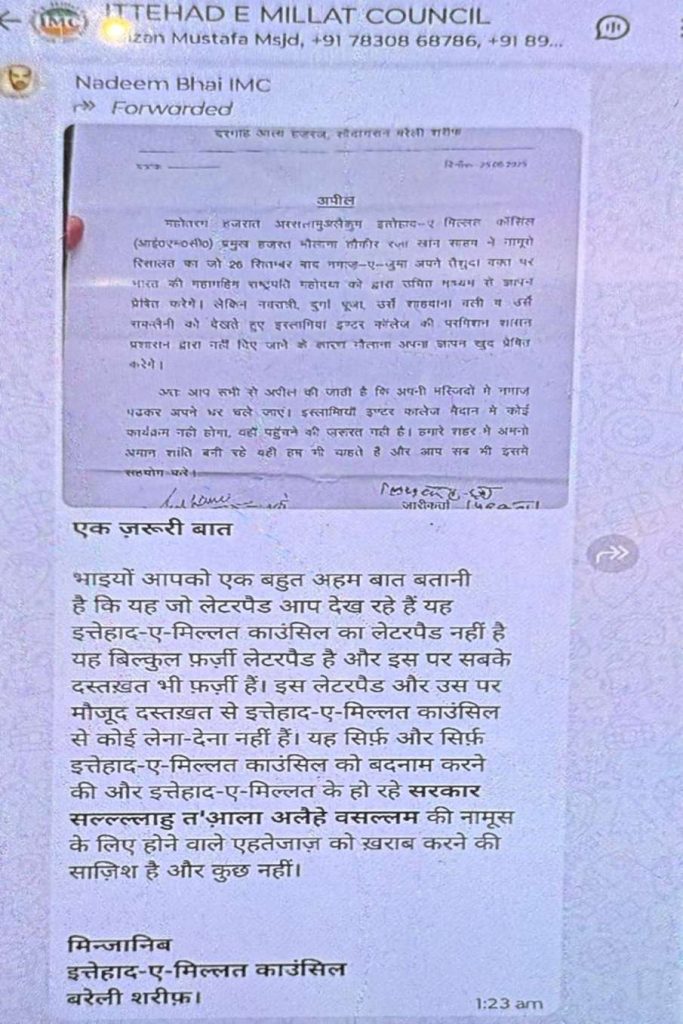 ITTEHAD E MILLAT COUNCIL
IMC
izan Mustafa Msjd, +91 78308 68786, +91 89...
Nadeem Bhai IMC
Forwarded
दरगाह आला हजरत, सौदागरान बरेली शरीफ
दिनांक- 25.09.2025
अपील
महोतरम हजरात अस्सलामुअलैकुम इत्तेहाद-ए मिल्लत कौंसिल
(आई०एम०सी०) प्रमुख हजरत मौलाना तौकीर रजा खांन साहब ने नामूसे
रिसालत का जो 26 सितम्बर बाद नमाज-ए-जुमा अपने तैशुदा वक्त पर
भारत की महामहिम राष्ट्रपति महोदया को द्वारा उचित मध्यम से ज्ञापन
प्रेषित करेगे। लेकिन नवरात्री, दुर्गा पूजा, उर्से शाहदाना वली व उर्से
सकलैनी को देखते हुए इस्लामिया इण्टर कॉलेज की परमिशन शासन
प्रशासन द्वारा नहीं दिए जाने के कारण मौलाना अपना ज्ञापन खुद प्रेषित
करेगे।
अतः आप सभी से अपील की जाती है कि अपनी मस्जिदों मे नमाज
पढकर अपने घर चले जाएं। इस्लामियाँ इण्टर कालेज मैदान मे कोई
कार्यक्रम नही होगा, वहाँ पहुंचने की जरूरत नही है। हमारे शहर मे अमनो
अमान शांति बनी रहे यही हम भी चाहते है और आप सब भी इसमे
सहयोग करे।
जारीकर्ता
एक ज़रूरी बात
भाइयों आपको एक बहुत अहम बात बतानी
है कि यह जो लेटरपैड आप देख रहे हैं यह
इत्तेहाद-ए-मिल्लत काउंसिल का लेटरपैड नहीं है
यह बिल्कुल फ़र्ज़ी लेटरपैड है और इस पर सबके
दस्तख़त भी फ़र्ज़ी हैं। इस लेटरपैड और उस पर
मौजूद दस्तख़त से इत्तेहाद-ए-मिल्लत काउंसिल
से कोई लेना-देना नहीं हैं। यह सिर्फ़ और सिर्फ़
इत्तेहाद-ए-मिल्लत काउंसिल को बदनाम करने
की और इत्तेहाद-ए-मिल्लत के हो रहे सरकार
सल्लल्लाहु त'आला अलैहे वसल्लम की नामूस
के लिए होने वाले एहतेजाज़ को ख़राब करने की
साज़िश है और कुछ नहीं।
मिन्जानिब
इत्तेहाद-ए-मिल्लत काउंसिल
बरेली शरीफ़।
1:23 am